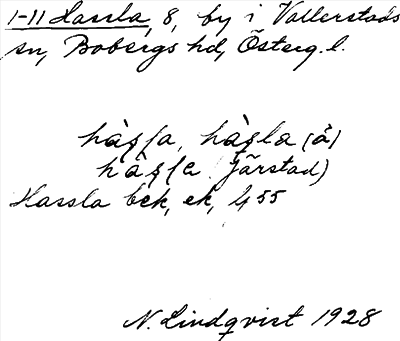 1-11 Hassla, 8, by i Vallerstads
sn, Bobergs hd, Österg. l.
hàʂʃa, hàʂla (å)
Järstad)
Hassla bek, ek, 455
N. Lindqvist 1928